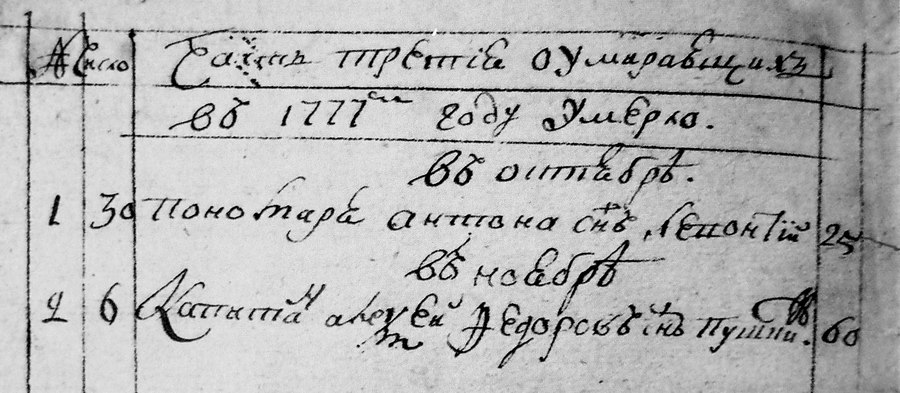 число Часть третїа о умиравшихъ
въ 1777 году умерло.
въ октабрѣ.
1 30 Пономаря антона снъ Леонтїй 25
въ ноабрѣ
2 6 Капитан алеѯей Федоровъ снъ Пушки. 60